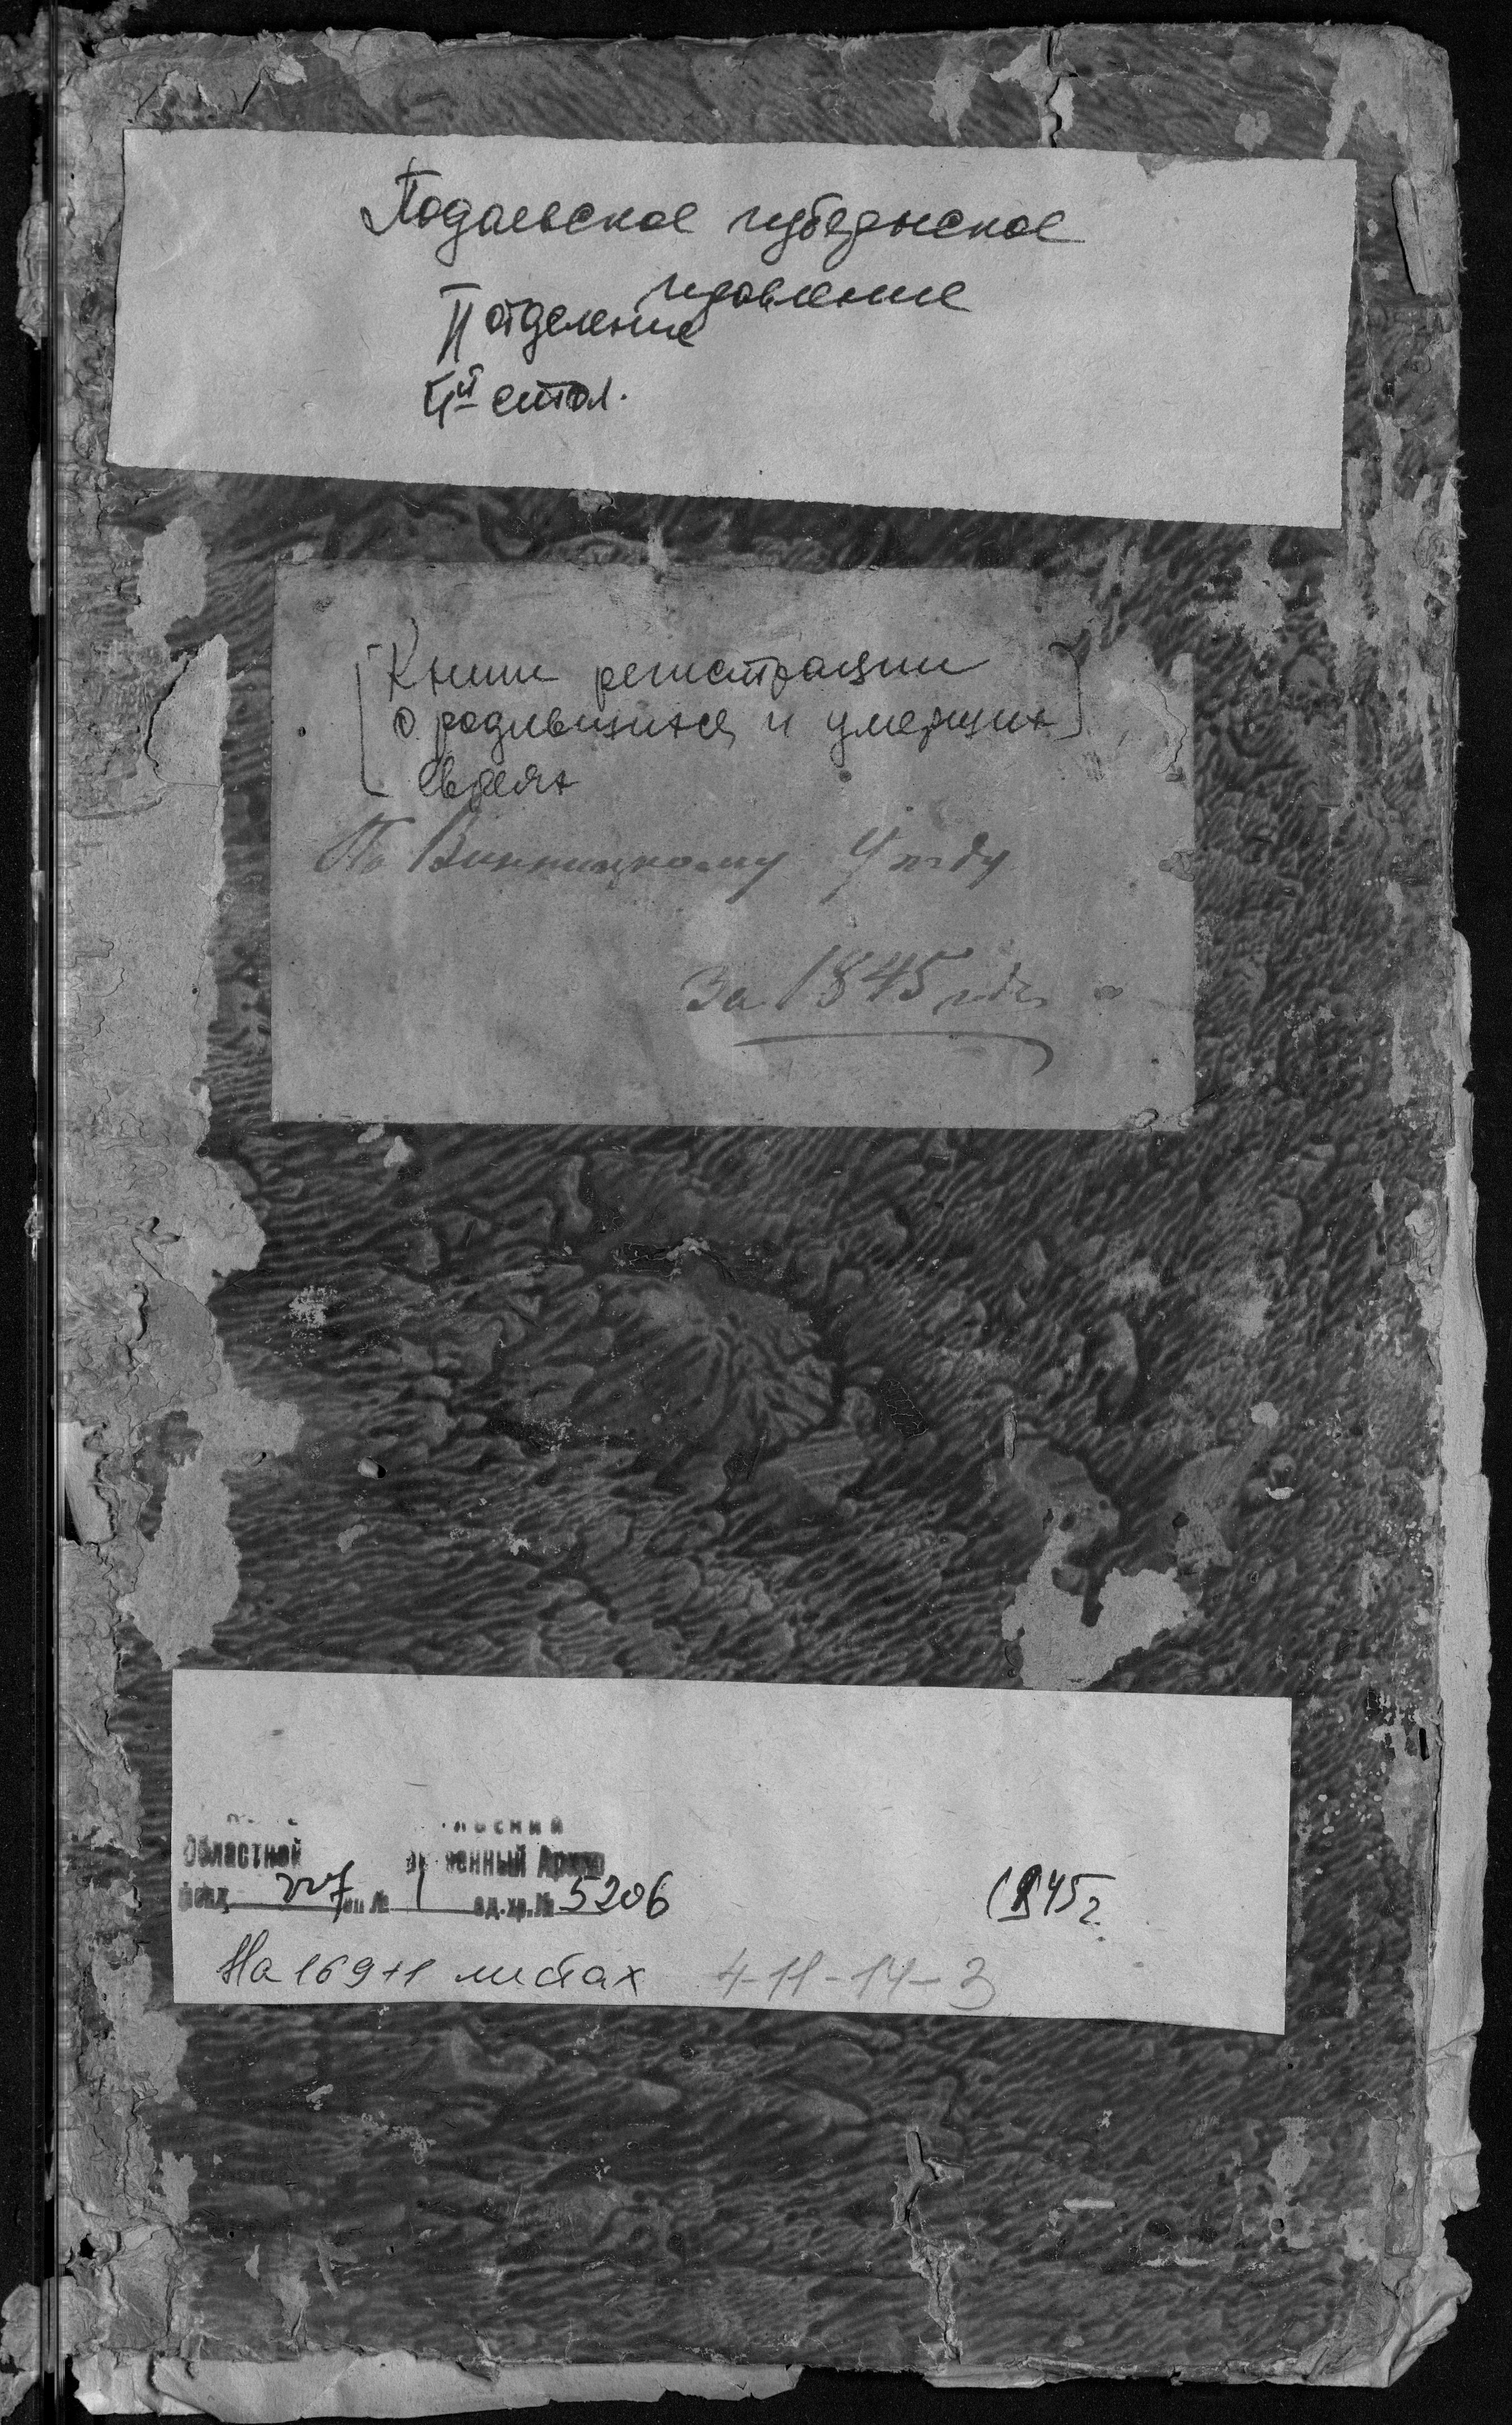 Подольское губернское
правление
II отделение
5й стол.
[Книги регистрации
о родившихся и умерших]
евреях
По Винницкому Уезду
За 1845 годъ
льский
Областной венный Архив
фонд 227 оп № 1 ед.хр.№ 5206
1845 г.
На 169+1 листах 4-11-14-3